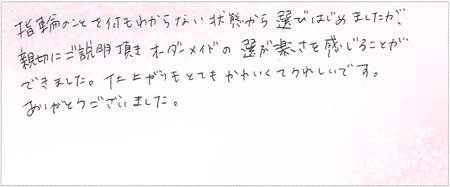 指輪のことを何もわからない状態から選びはじめましたが、
親切にご説明頂きオーダーメイドの選ぶ楽さを感じることが
できました。仕上がりもとてもかわいくてうれしいです。
ありがとうございました。